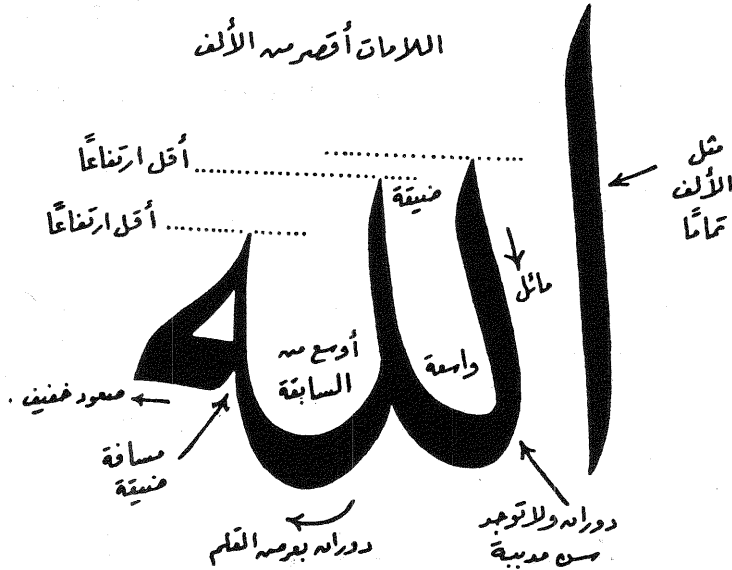 اللامات أقصر من الألف
مثل
الألف
تمامًا
أقل ارتفاعًا
أقل ارتفاعًا
ضيقة
مائل
الله
واسعة
أوسع من
السابقة
صعود خفيف .
مسافة
ضيقة
دوران ولا توجد
سن مدببة
دوران بعرض القلم